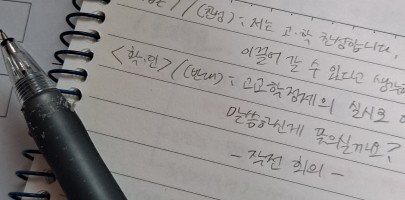 /(찬성): 저는 고·학 찬성합니다.
이끌어 갈 수 있다고 생각
<학·단>/(반대): 고교학점제의 실시로
말씀하신게 맞으실까요?
- 작전 회의 -